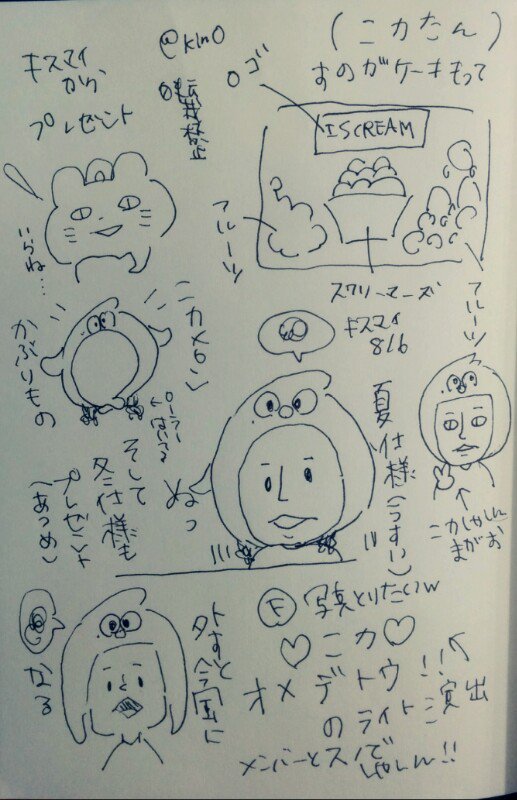 (ニカたん)
すのがケーキもって
キスマイ
から、
プレゼント
ロゴ
ISCREAM
フルーツ
フルーツ
スクリーマーズ
キスマイ
816
いらね…
ニカメン
かぶりもの
ローラー
はいてる
そして
冬仕様も
プレゼント
(あつめ)
ぬっ
夏仕様(うすい)
ニカしかしん
まがお
Ⓕ 写真とりたいw
♡ニカ♡
オメデトウ!!
のライト演出
メンバーとスノで
しゃしん!!